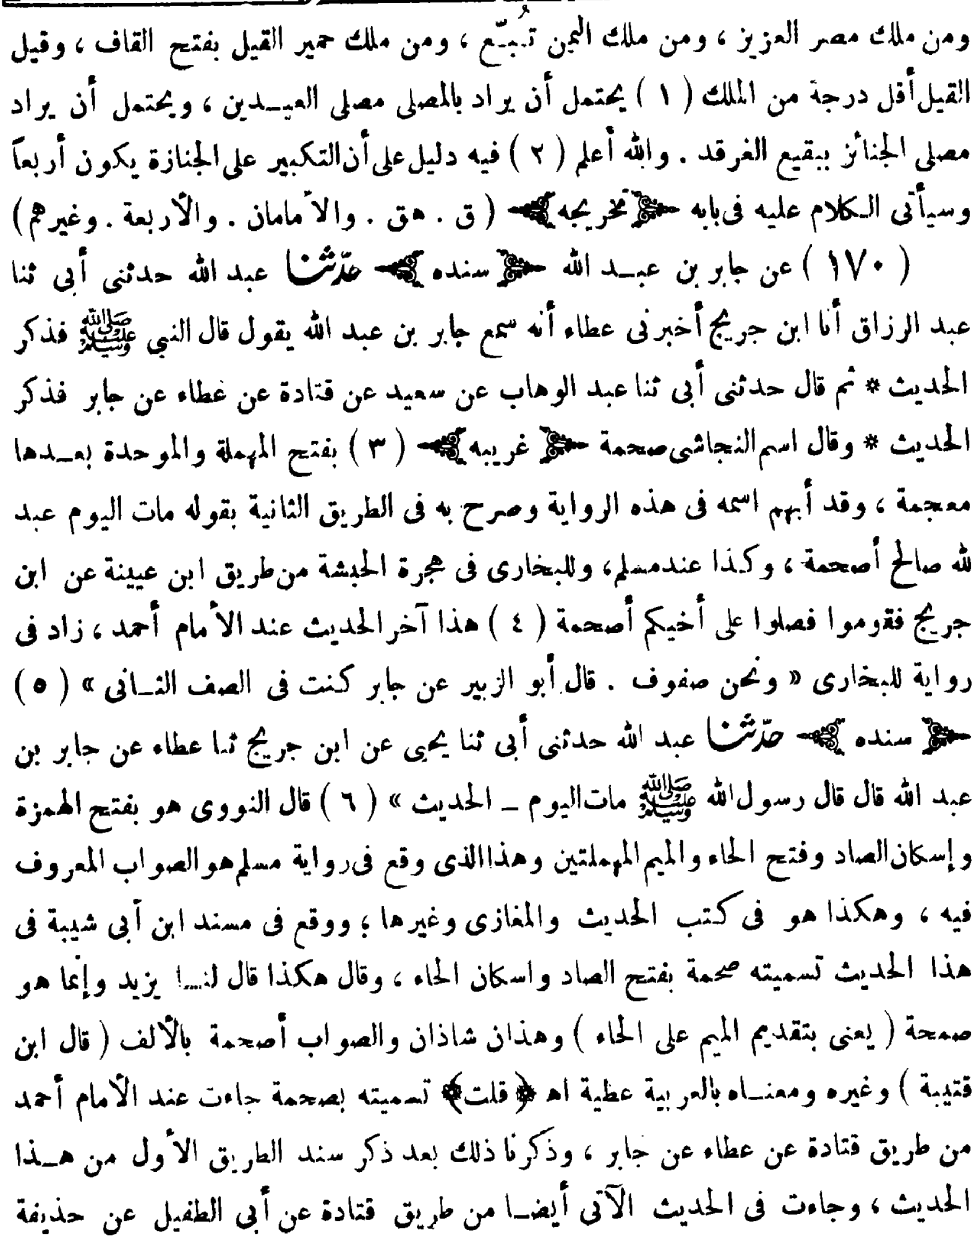 ومن ملك مصر العزيز ، ومن ملك اليمن تُبـّع ، ومن ملك حمير القيل بفتح القاف ، وقيل
القيل أقل درجة من الملك ( ١ ) يحتمل أن يراد بالمصلى مصلى العيــدين ، ويحتمل أن يراد
مصلى الجنائز ببقيع الغرقد . والله أعلم ( ٢ ) فيه دليل على أن التكبير على الجنازة يكون أربعاً
وسيأتى الـكلام عليه فى بابه ﴿ تخريجه ﴾ ( ق . هق . والأ مامان . والأربعة . وغيرهم )
( ١٧٠ ) عن جابر بن عبــد الله ﴿ سنده ﴾ حدّثنا عبد الله حدثنى أبى ثنا
عبد الرزاق أنا ابن جريج أخبرنى عطاء أنه سمع جابر بن عبد الله يقول قال النبي ﷺ فذكر
الحديث * ثم قال حدثنى أبى ثنا عبد الوهاب عن سعيد عن قتادة عن عطاء عن جابر فذكر
الحديث * وقال اسم النجاشى صحمة ﴿ غريبه ﴾ ( ٣ ) بفتح المهملة والموحدة بعــدها
معجمة ، وقد أبهم اسمه فى هذه الرواية وصرح به فى الطريق الثانية بقوله مات اليوم عبد
لله صالح أصحمة ، وكذا عند مسلم ، وللبخارى فى هجرة الحبشة من طريق ابن عيينة عن ابن
جريج فقوموا فصلوا على أخيكم أصحمة ( ٤ ) هذا آخر الحديث عند الأ مام أحمد ، زاد فى
رواية للبخارى « ونحن صفوف . قال أبو الزبير عن جابر كنت فى الصف الثــانى » ( ٥ )
﴿ سنده ﴾ حدّثنا عبد الله حدثنى أبى ثنا يحيى عن ابن جريج ثنا عطاء عن جابر بن
عبد الله قال قال رسول الله ﷺ مات اليوم ـ الحديث » ( ٦ ) قال النووى هو بفتح الهمزة
وإسكان الصاد وفتح الحاء والميم المهملتين وهذا الذى وقع فى رواية مسلم هو الصواب المعروف
فيه ، وهكذا هو فى كتب الحديث والمغازى وغيرها ؛ ووقع فى مسند ابن أبى شيبة فى
هذا الحديث تسميته صحمة بفتح الصاد واسكان الحاء ، وقال هكذا قال لنــا يزيد وإنما هو
صمحة ( يعنى بتقديم الميم على الحاء ) وهذان شاذان والصواب أصحمة بالألف ( قال ابن
قتيبة ) وغيره ومعنــاه بالعربية عطية اهـ ﴿ قلت ﴾ تسميته بصحمة جاءت عند الأمام أحمد
من طريق قتادة عن عطاء عن جابر ، وذكرنا ذلك بعد ذكر سند الطريق الأول من هــذا
الحديث ، وجاءت فى الحديث الآتى أيضــا من طريق قتادة عن أبى الطفيل عن حذيفة